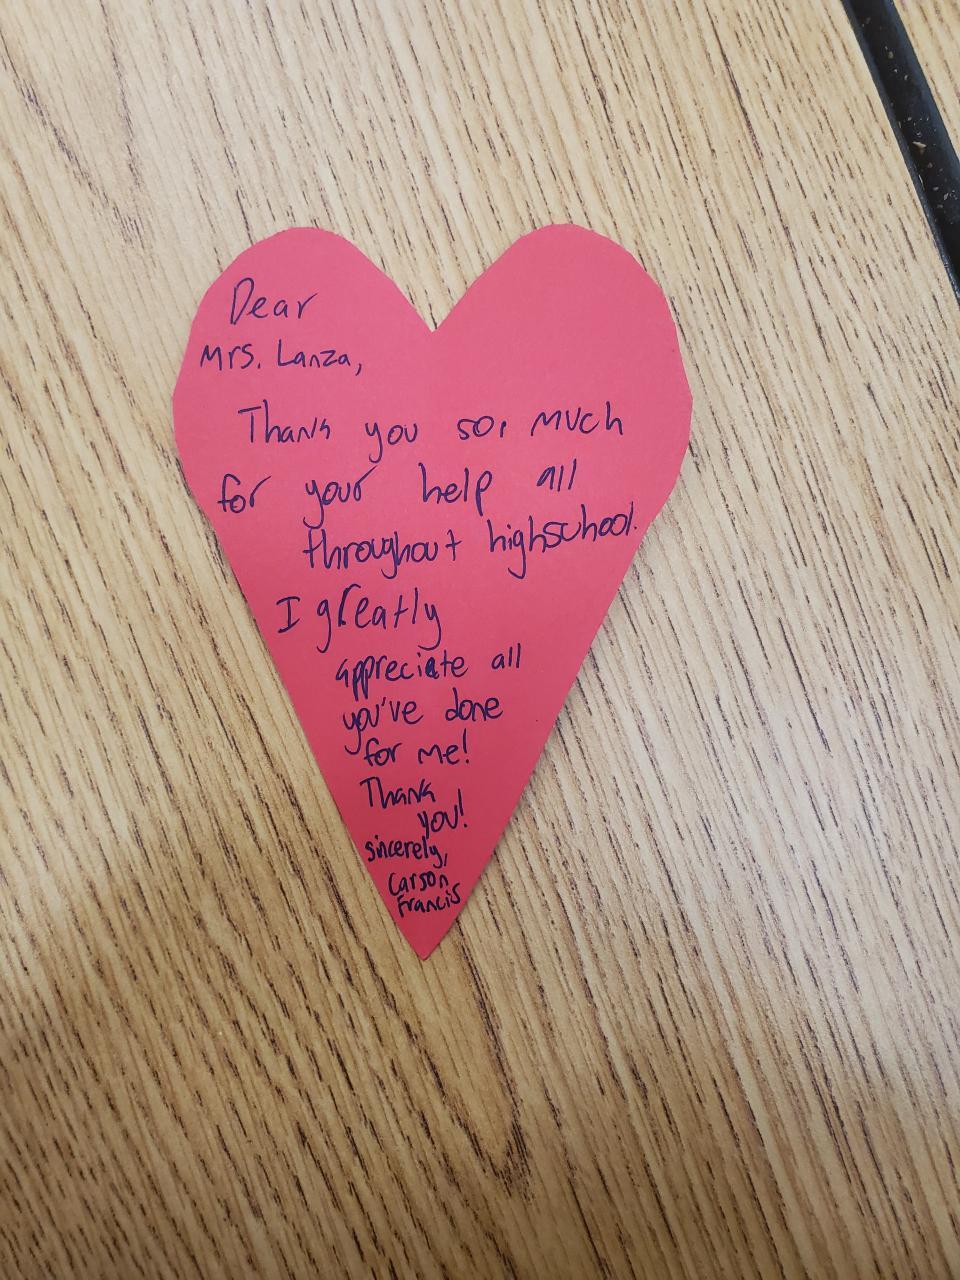 Dear
Mrs. Lanza,
Thank you so, much
for your help all
throughout highschool.
I greatly
appreciate all
you've done
for me!
Thank
you!
sincerely,
Carson
Francis